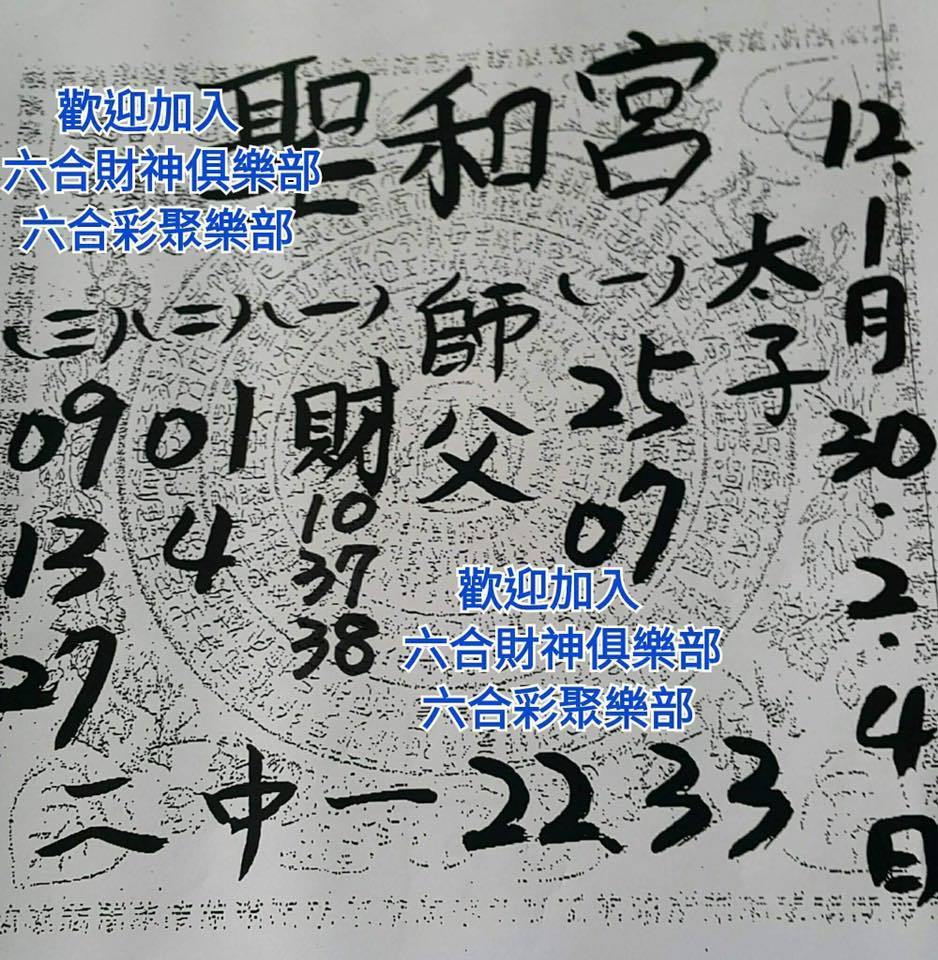 聖和宮
12.1月30.2.4日
太子
(一)
25
07
師父
(一)
財
10
37
38
(二)
01
4
(三)
09
13
27
二中一 22 33
歡迎加入
六合財神俱樂部
六合彩聚樂部
歡迎加入
六合財神俱樂部
六合彩聚樂部